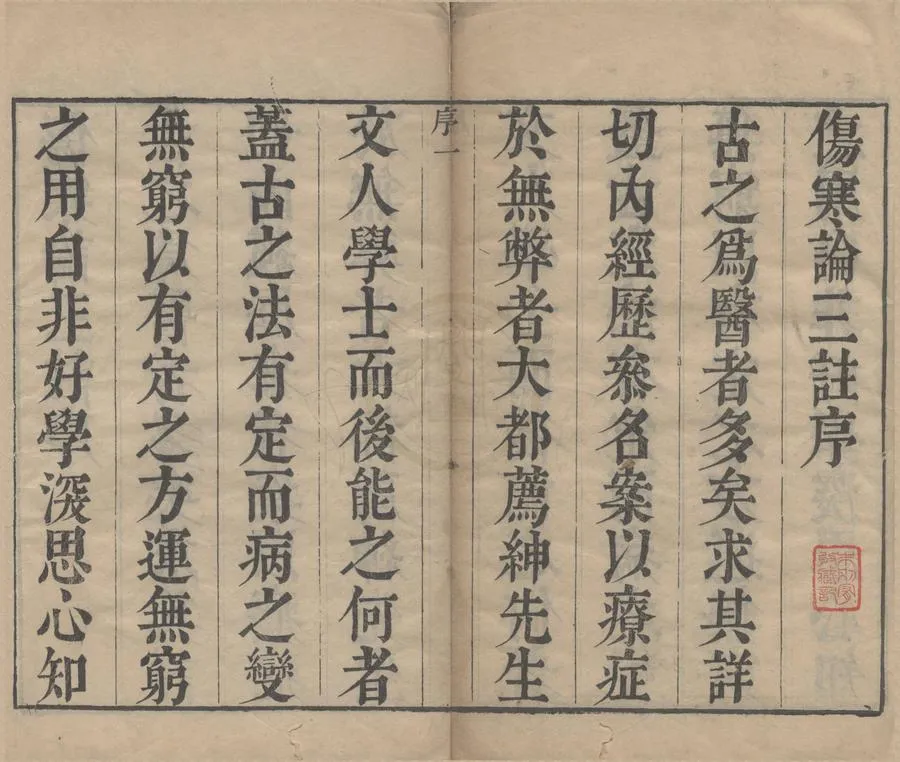 傷寒論三註序
古之爲醫者多矣求其詳
切內經歷叅名案以療症
於無弊者大都薦紳先生
序一
文人學士而後能之何者
蓋古之法有定而病之變
無窮以有定之方運無窮
之用自非好學深思心知